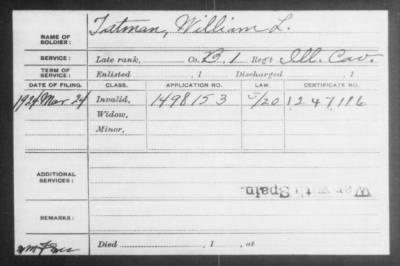 NAME OF SOLDIER: Tatman, William L.
SERVICE: Late rank, Co. B. 1 Reg't Ill. Cav.
TERM OF SERVICE: Enlisted , 1 Discharged , 1
DATE OF FILING. CLASS. APPLICATION NO. LAW. CERTIFICATE NO.
1924 Mar 24 Invalid, 1498153 5/20 1247116
Widow,
Minor,
ADDITIONAL SERVICES: War with Spain.
REMARKS:
Died , 1 , at